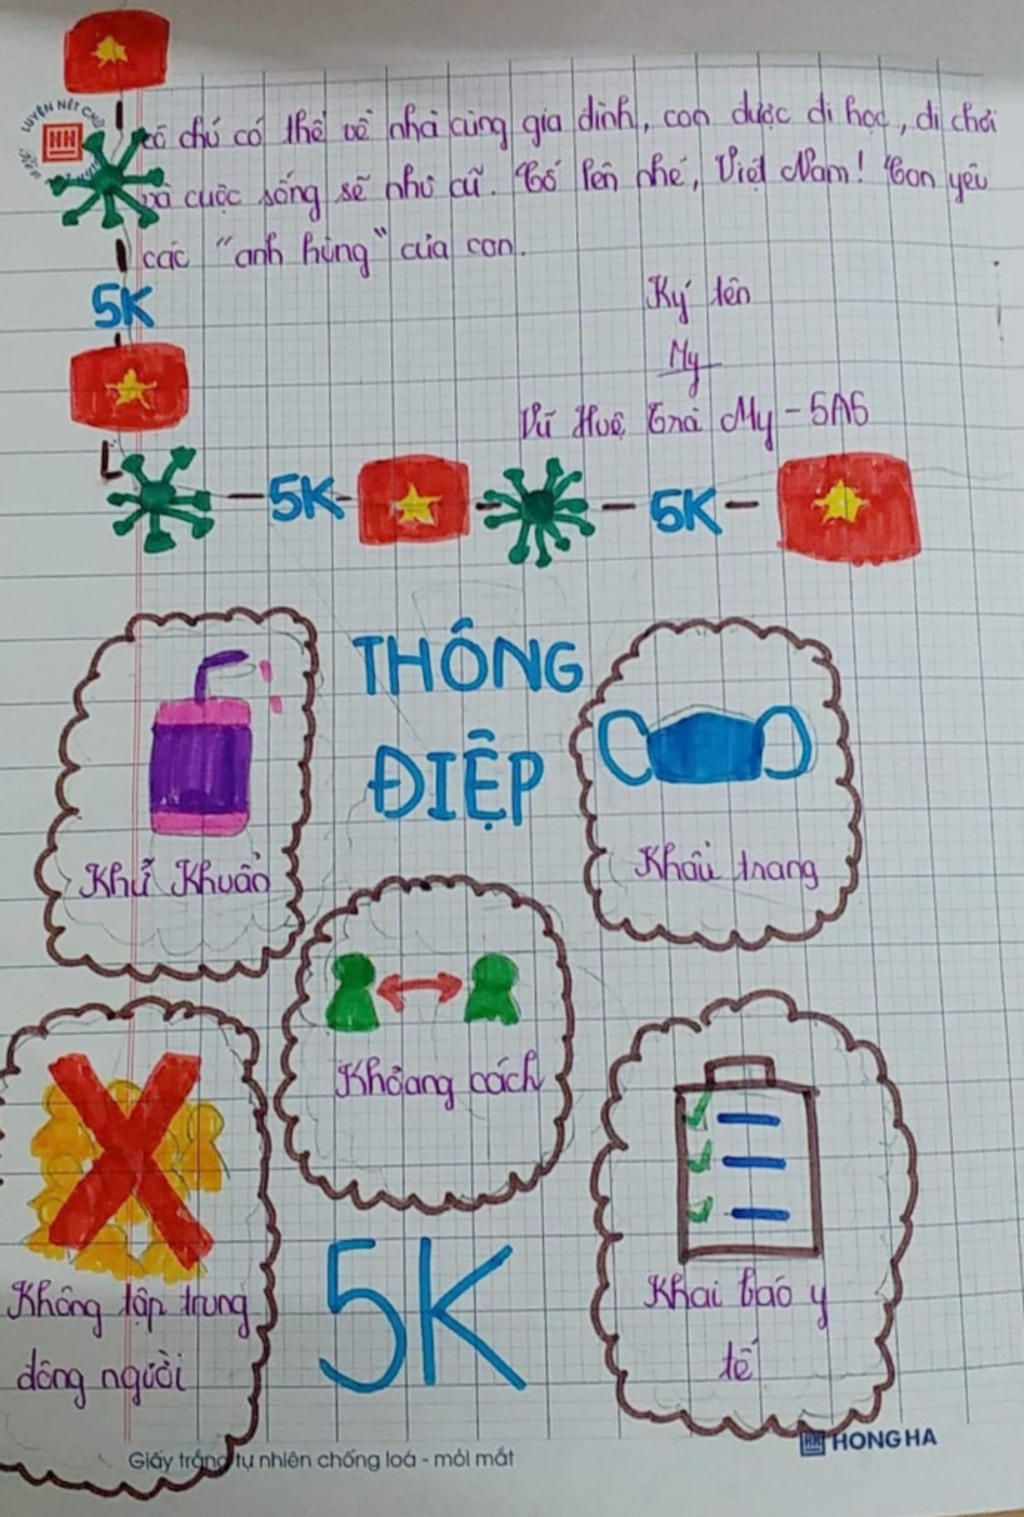 LUYỆN NÉT CHỮ
HH
cô chú có thể về nhà cùng gia đình, con được đi học, đi chơi
và cuộc sống sẽ như cũ. Cố lên nhé, Việt Nam! Con yêu
các "anh hùng" của con.
5K
Ký tên
My
Vũ Huệ Trà My - 5A5
5K
5K
THÔNG
ĐIỆP
Khử Khuẩn
Khẩu trang
Khoảng cách
Không tập trung
đông người
5K
Khai báo y
tế
Giấy trắng tự nhiên chống loá - mỏi mắt
HH HONG HA